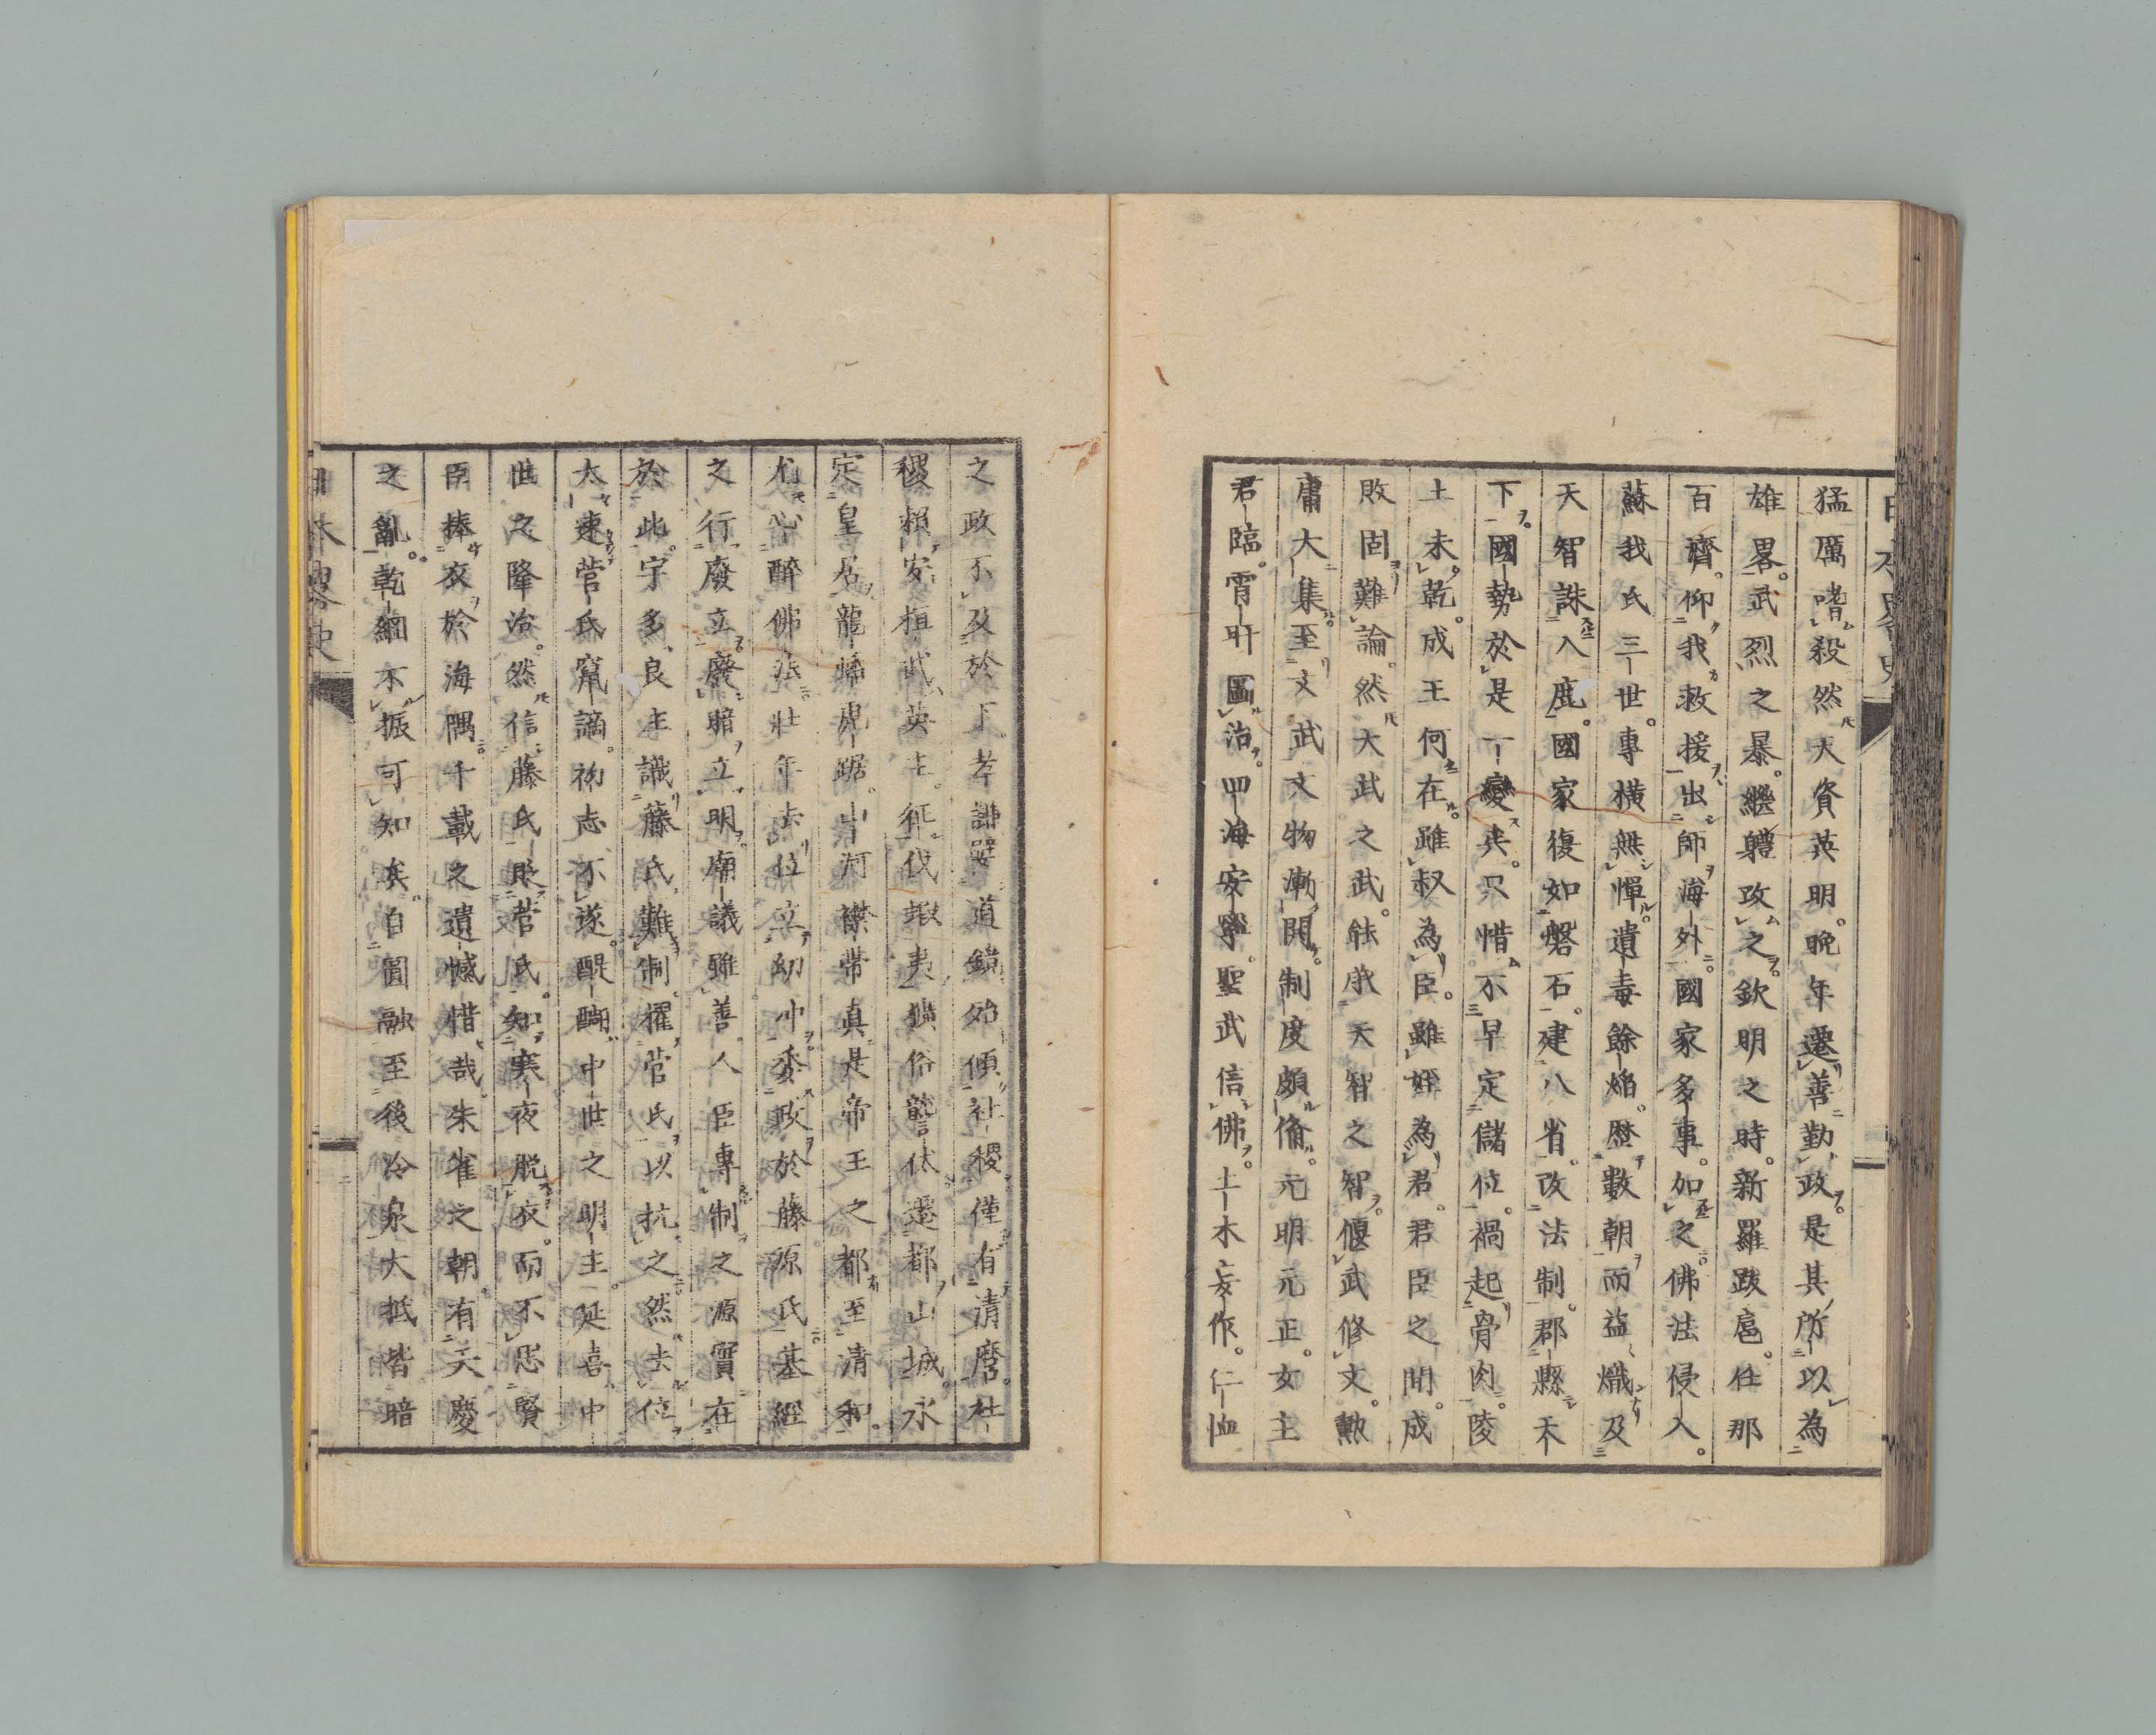 猛厲嗜殺然天資英明。晩年遷善勤政。是其所以為
雄畧。武烈之暴。繼體攻之。欽明之時。新羅跋扈。任那
百濟。仰我救援。出師海外。國家多事。如之。佛法侵入。
蘇我氏三世。專横無憚。遺毒餘焔。歴數朝而益熾。及
天智誅入鹿。國家復如磐石。建八省。改法制。郡縣天
下。國勢於是一變矣。只惜不早定儲位。禍起骨肉。陵
土未乾。成王何在。雖叔為臣。雖姪為君。君臣之間。成
敗固難論。然天武之武。能成天智之智。偃武修文。勲
庸大集。至文武文物漸開。制度頗備。元明元正。女主
君臨。宵旰圖治。四海安寧。聖武信佛。土木妄作。仁恤
之政不及於下。孝謙嬖道鏡殆傾社稷。僅有清麿。社
稷頼安。桓武英主。征伐蝦夷。獷俗讋伏。遷都山城。永
定皇居。龍蟠虎踞。山河襟帯真是帝王之都。至清和。
尤心醉佛法。壮年去位。立幼冲。委政於藤源氏。基經
之行廢立。廢暗立明。廟議雖善。人臣專制之源實在
於此。宇多良主識藤氏難制。擢菅氏以抗之。然去位
太速。菅氏竄謫。初志不遂。醍醐中世之明主。延喜中
世之隆治。然信藤氏貶菅氏。知寒夜脱衣。而不思賢
臣捧衣於海隅。千載之遺憾惜哉。朱雀之朝。有天慶
之亂。乾綱不振可知矣。自圓融至後冷泉大抵皆暗
日本畧史